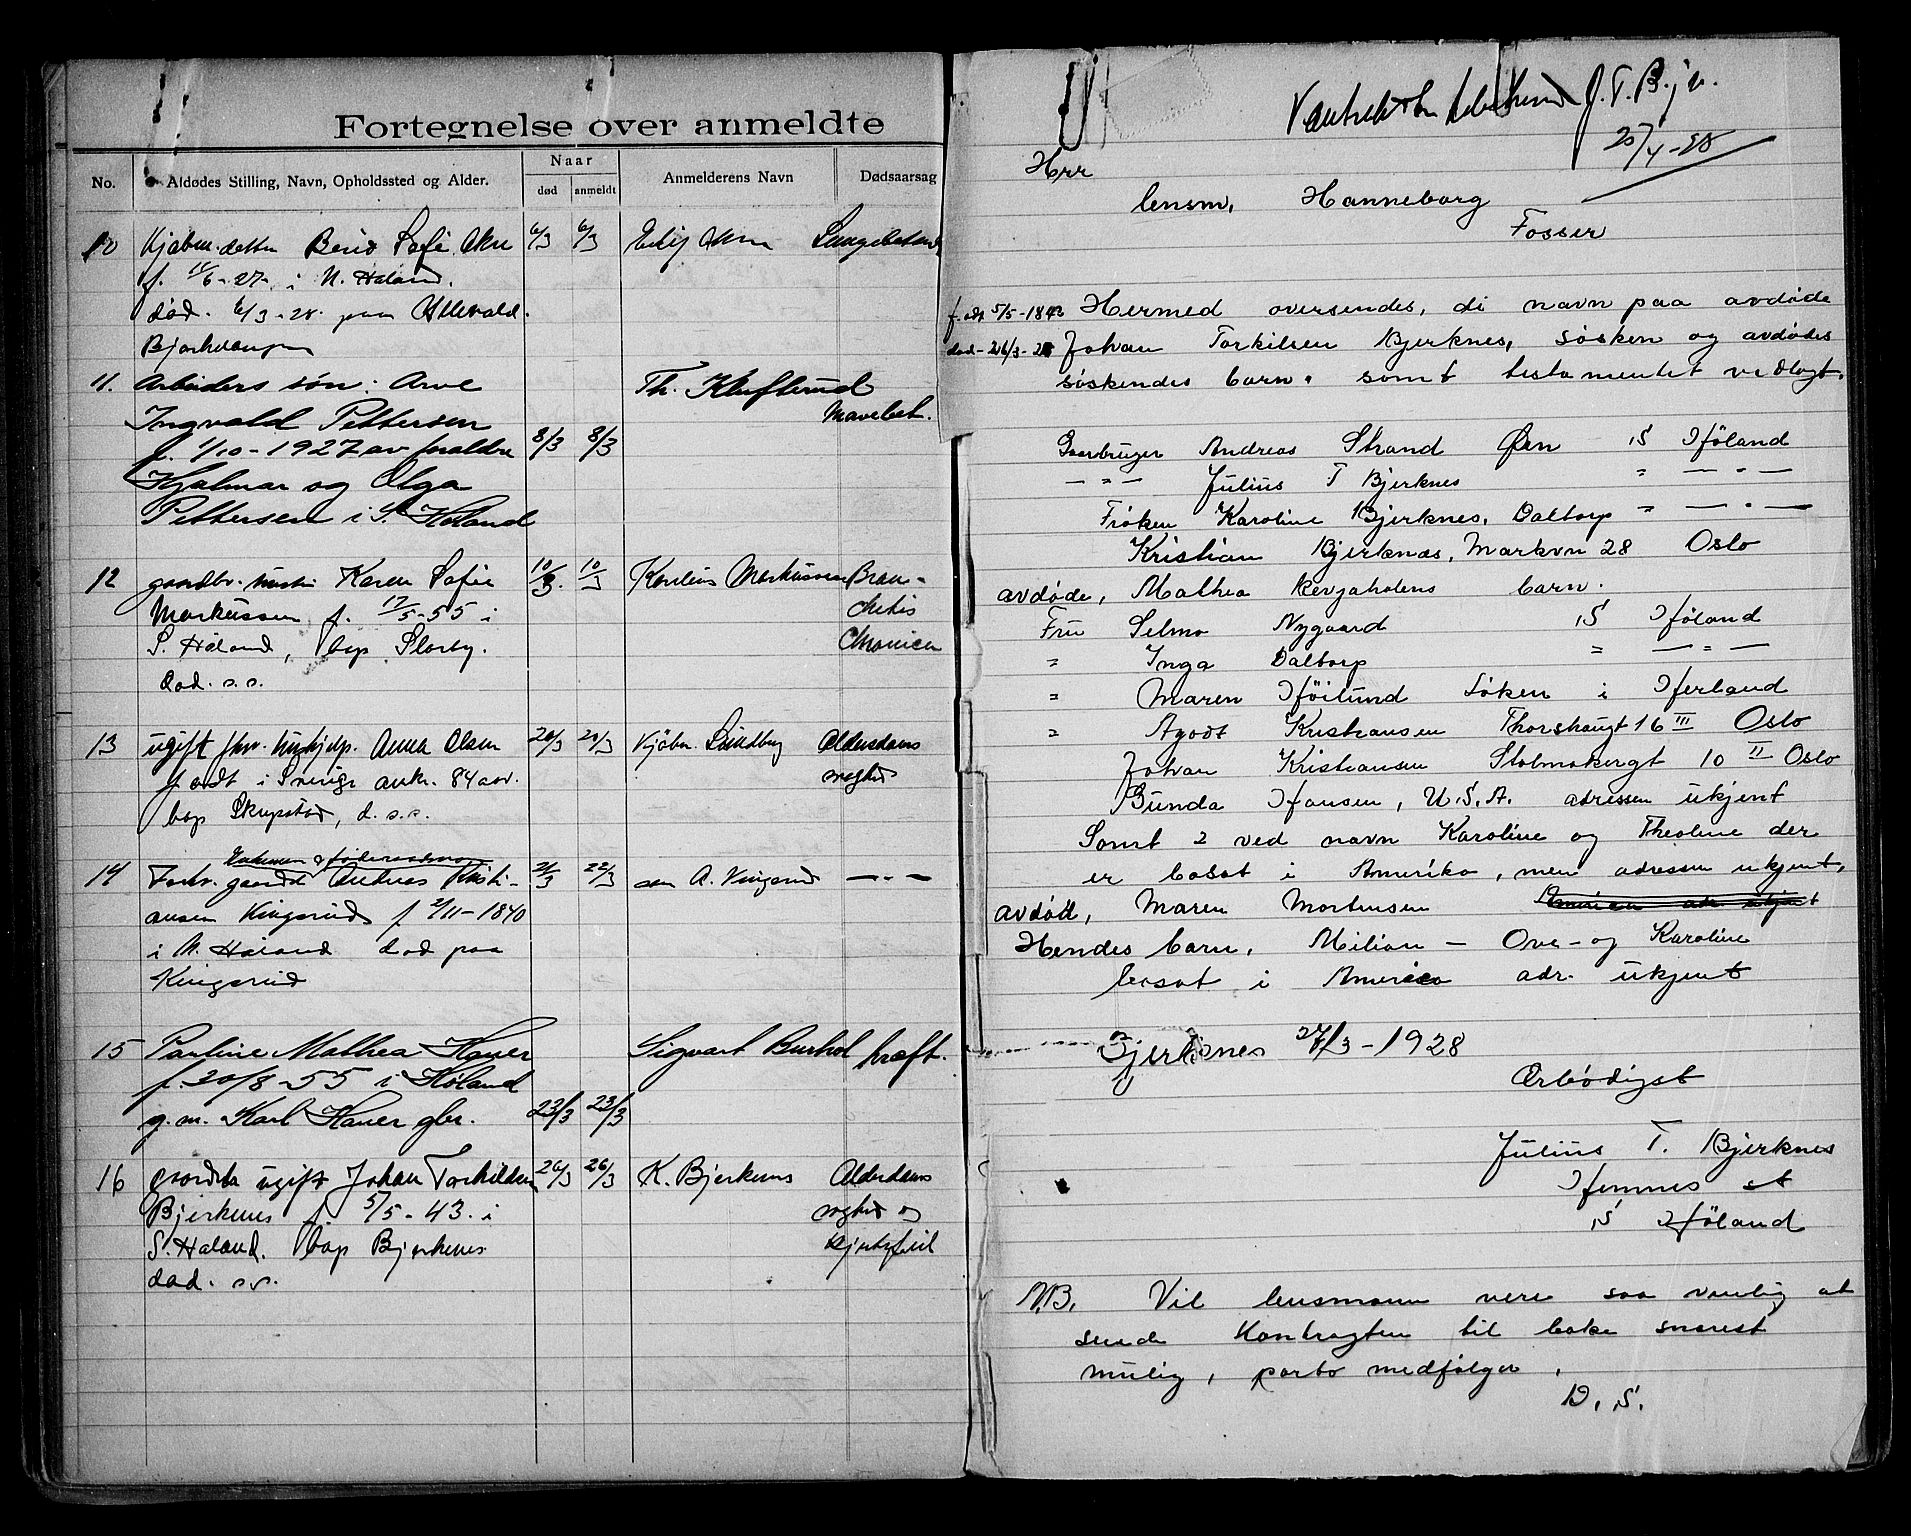 Fortegnelse over anmeldte
No.
Afdødes Stilling, Navn, Opholdssted og Alder.
Naar
død
anmeldt
Anmelderens Navn
Dødsaarsag
10 Kjøbm. datter Sofie 6/3 6/3
f. 11/6-27 i N. Høland.
død. 6/3-28. paa Ullevold.
11. Arbeiders søn. Arve Th. Klufterud
Ingvald Pettersen Mavebet.
f. 1/10-1927 av foraldre 8/3 8/3
Hjalmar og Olga
Pettersen i S. Høland
12 gaardbr. hustru Karen Sofie 10/3. 10/3 Markussen Bron-
Markussen f. 17/5-55 i chitis
S. Høland, bop Slorby. Chronica
død. s.s.
13 ugift fhv. hushjelp. Anna Olsen 20/3 20/3 Kjøbm. Lundby Alderdoms
født i Sverige ank. 84 aar. svaghed
bop Skrepstad, d. s.s.
14 Forhv. gaardbr. Kristi- 21/3 22/3 A. Kingsrud — " —
ansen Kingsrud f 2/11-1840
i N. Høland død paa
Kingsrud
15 Pauline Mathea Haner Sigvart Burhol kræft.
f. 20/8-55 i Høland
g.m. Karl Haner gbr. 23/3 23/3
16 ugift Johan Torkildsen 26/3 26/3 K. Bjerkenes Alderdoms
Bjerkenes f 5/5-43. i svaghed og
S. Høland. bop Bjerkenes hjertefeil
død. s.s.
J. T. Bj
20/4-28
Herr
lensm. Hanneborg
Fosser
født 5/5-1843 Hermed oversendes, di navn paa avdøde
død-26/3-28 Johan Torkilsen Bjerknes, søsken og avdødes
søskendes barn. samt testamentet vedlagt.
Gaarbruger Andreas Strand Øen S Høland
— " — Julius T Bjerknes " — " —
Frøken Karoline Bjerknes, Daltorp " — " —
Kristian Bjerknæs, Markvn 28 Oslo
avdøde, Mathea Revjaholens barn.
Fru Selma Nygaard S Høland
" Inga Daltorp " — " —
" Maren Høilund Løken i Herland
" Agodt Kristiansen Thorshaugt 16 III Oslo
Johan Kristiansen Stolmakergt 10 II Oslo
Gunda Hansen, U.S.A. adressen ukjent
Samt 2 ved navn Karoline og Theoline der
er bosat i Amerika, men adressen ukjent,
avdød, Maren Mortensen
Hendes barn, Milian — Ove — og Karoline
bosat i America adr. ukjent
Bjerknes 27/3-1928
Ærbødigst
Julius T. Bjerknes
Hemnes st
S Høland
N.B. Vil lensmann være saa venlig at
sende Kontragten til bake snarest
mulig, porto medfølger.
D. S.